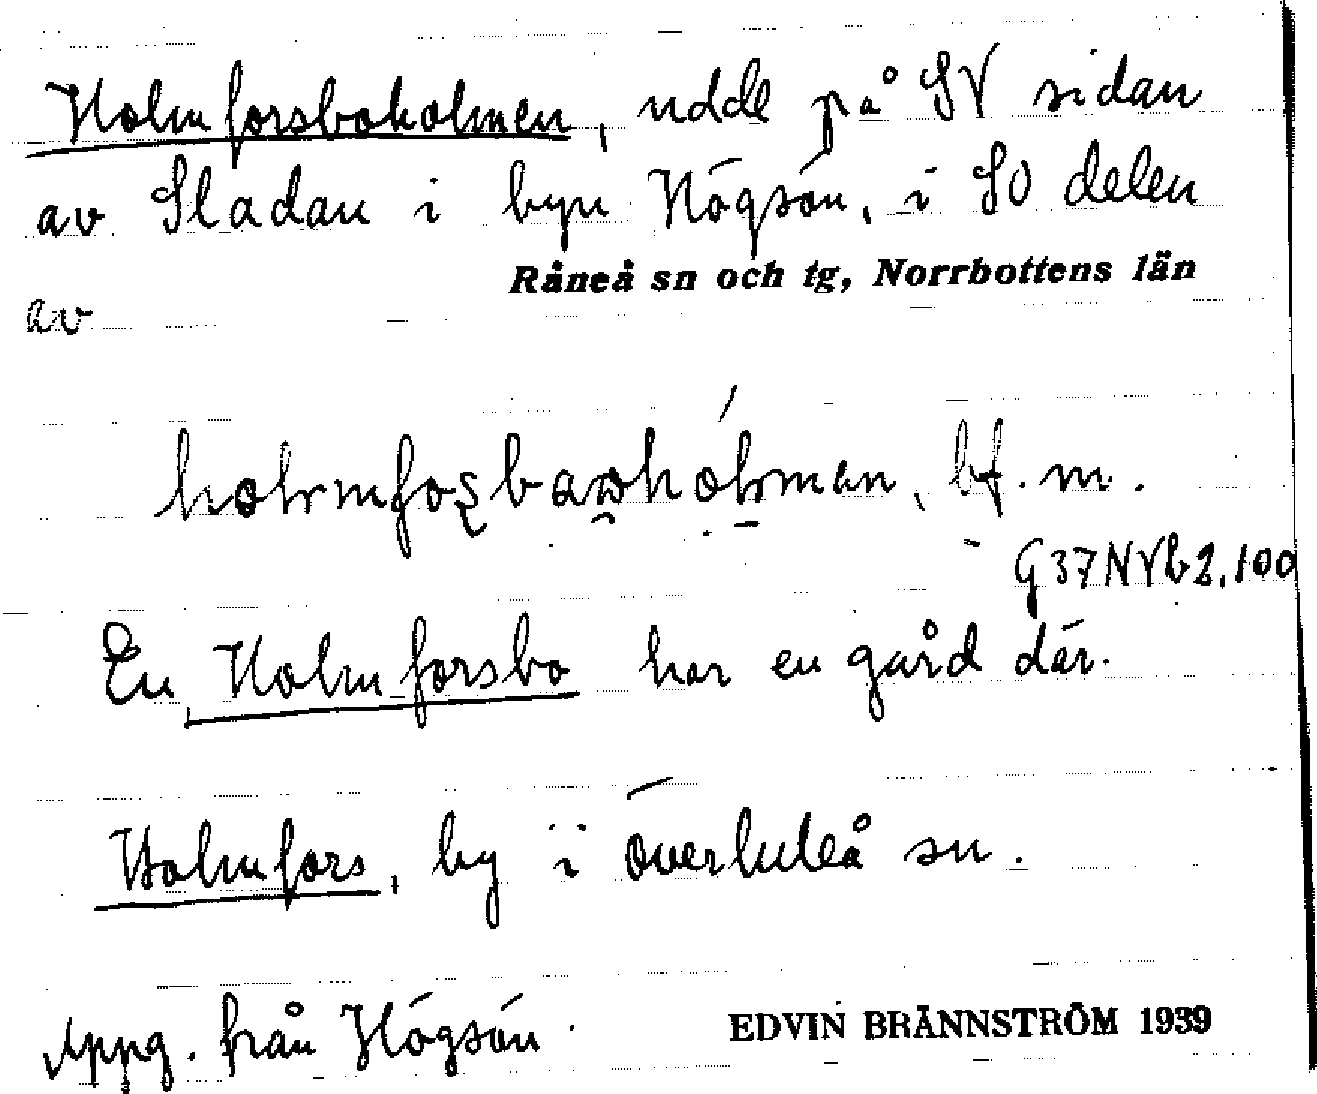 Holmforsboholmen, udde på SV sidan
av Sladan i byn Högsön, i SO delen
av Råneå sn och tg, Norrbottens län
bf. m.
G37NVb2.100
En Holmforsbo har en gård där.
Holmfors, by i Överluleå sn.
Uppg. från Högsön
EDVIN BRÄNNSTRÖM 1939